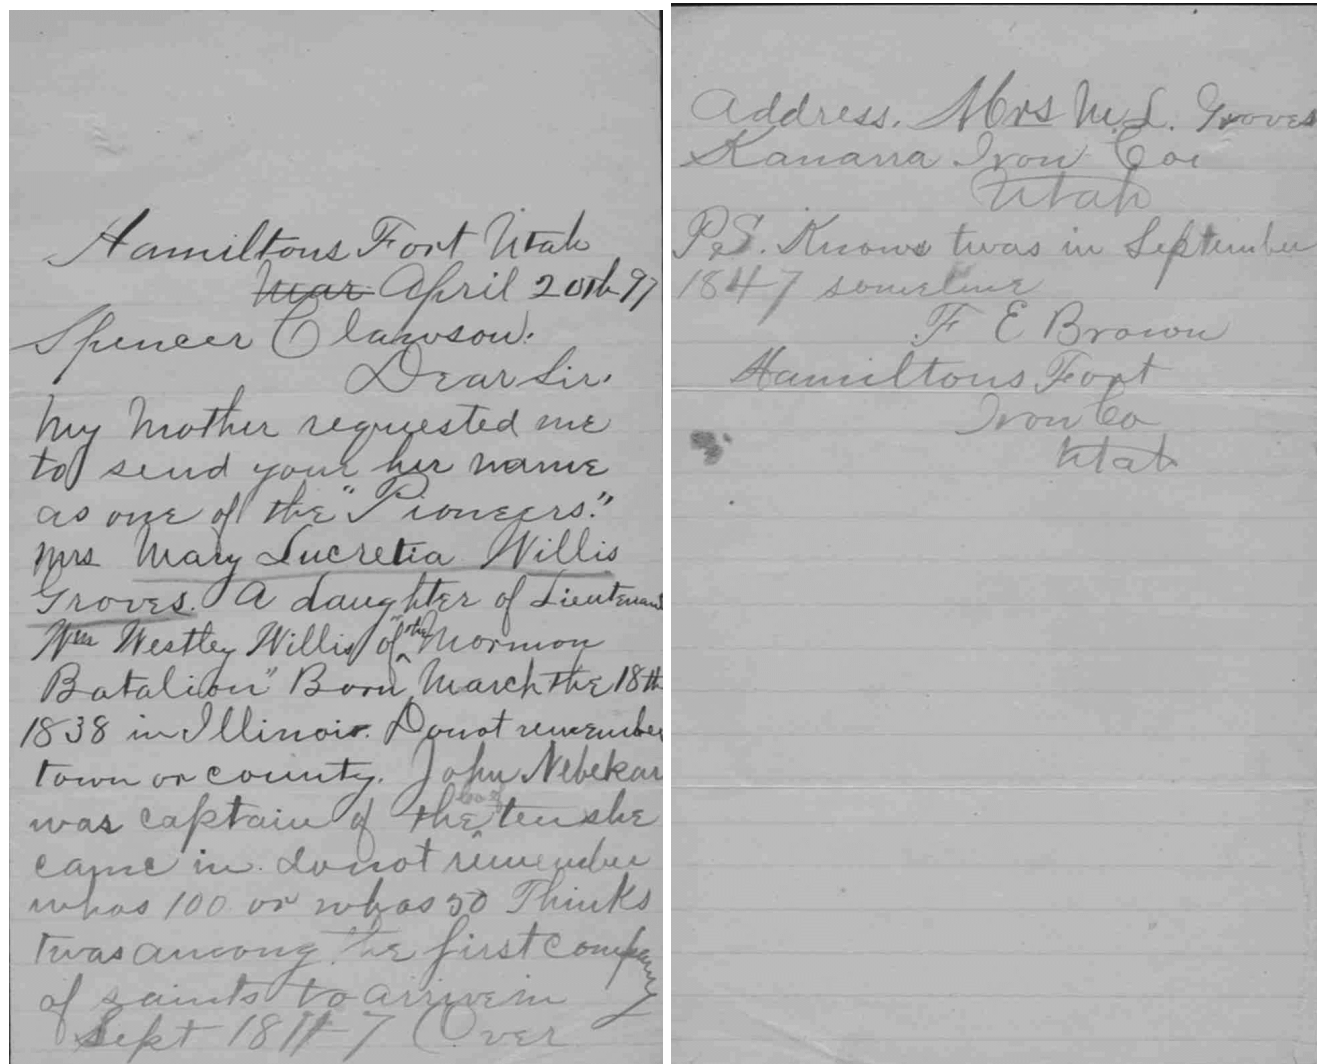 Hamiltons Fort Utah
Mar April 20th 97
Spencer Clawson.
Dear Sir.
My Mother requested me
to send your her name
as one of the "Pioneers."
Mrs Mary Lucretia Willis
Groves. A daughter of Lieutenant
Wm Westley Willis of the "Mormon
Batalion" Born March the 18th
1838 in Illinois. Do not remember
town or county. John Nebekar
was captain of the ten she
came in. do not remember
whos 100 or whos 50 Thinks
twas among the first company
of saints to arrive in
Sept 1847 (Over
Address. Mrs M. L. Groves
Kanarra Iron Co.
Utah
P.S. Knows twas in September
1847 sometime
F E Brown
Hamiltons Fort
Iron Co
Utah